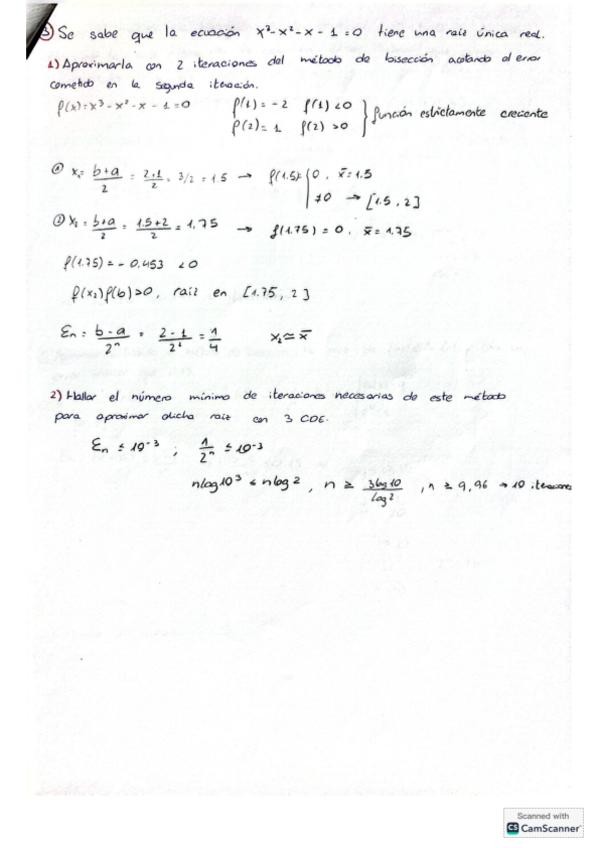 3) Se sabe que la ecuación x³-x²-x-1=0 tiene una raíz única real.
1) Aproximarla con 2 iteraciones del método de bisección acotando el error
cometido en la segunda iteración.
f(x)=x³-x²-x-1=0 f(1)=-2 f(1)<0
f(2)=1 f(2)>0 } función estrictamente creciente
① x₁= b+a/2 = 2+1/2 = 3/2 = 1.5 → f(1.5) { 0. x̄=1.5
≠0 → [1.5, 2]
② x₂= b+a/2 = 1.5+2/2 = 1.75 → f(1.75)=0. x̄=1.75
f(1.75)=-0.453 <0
f(x₂)f(b)>0, raíz en [1.75, 2]
En = b-a/2ⁿ = 2-1/2² = 1/4 x₂≃x̄
2) Hallar el número mínimo de iteraciones necesarias de este método
para aproximar dicha raíz con 3 CDE.
En ≤ 10⁻³ ; 1/2ⁿ ≤ 10⁻³
nlog10³ ≤ nlog2, n ≥ 3log10/log2, n ≥ 9,96 → 10 iteraciones
Scanned with
CS CamScanner